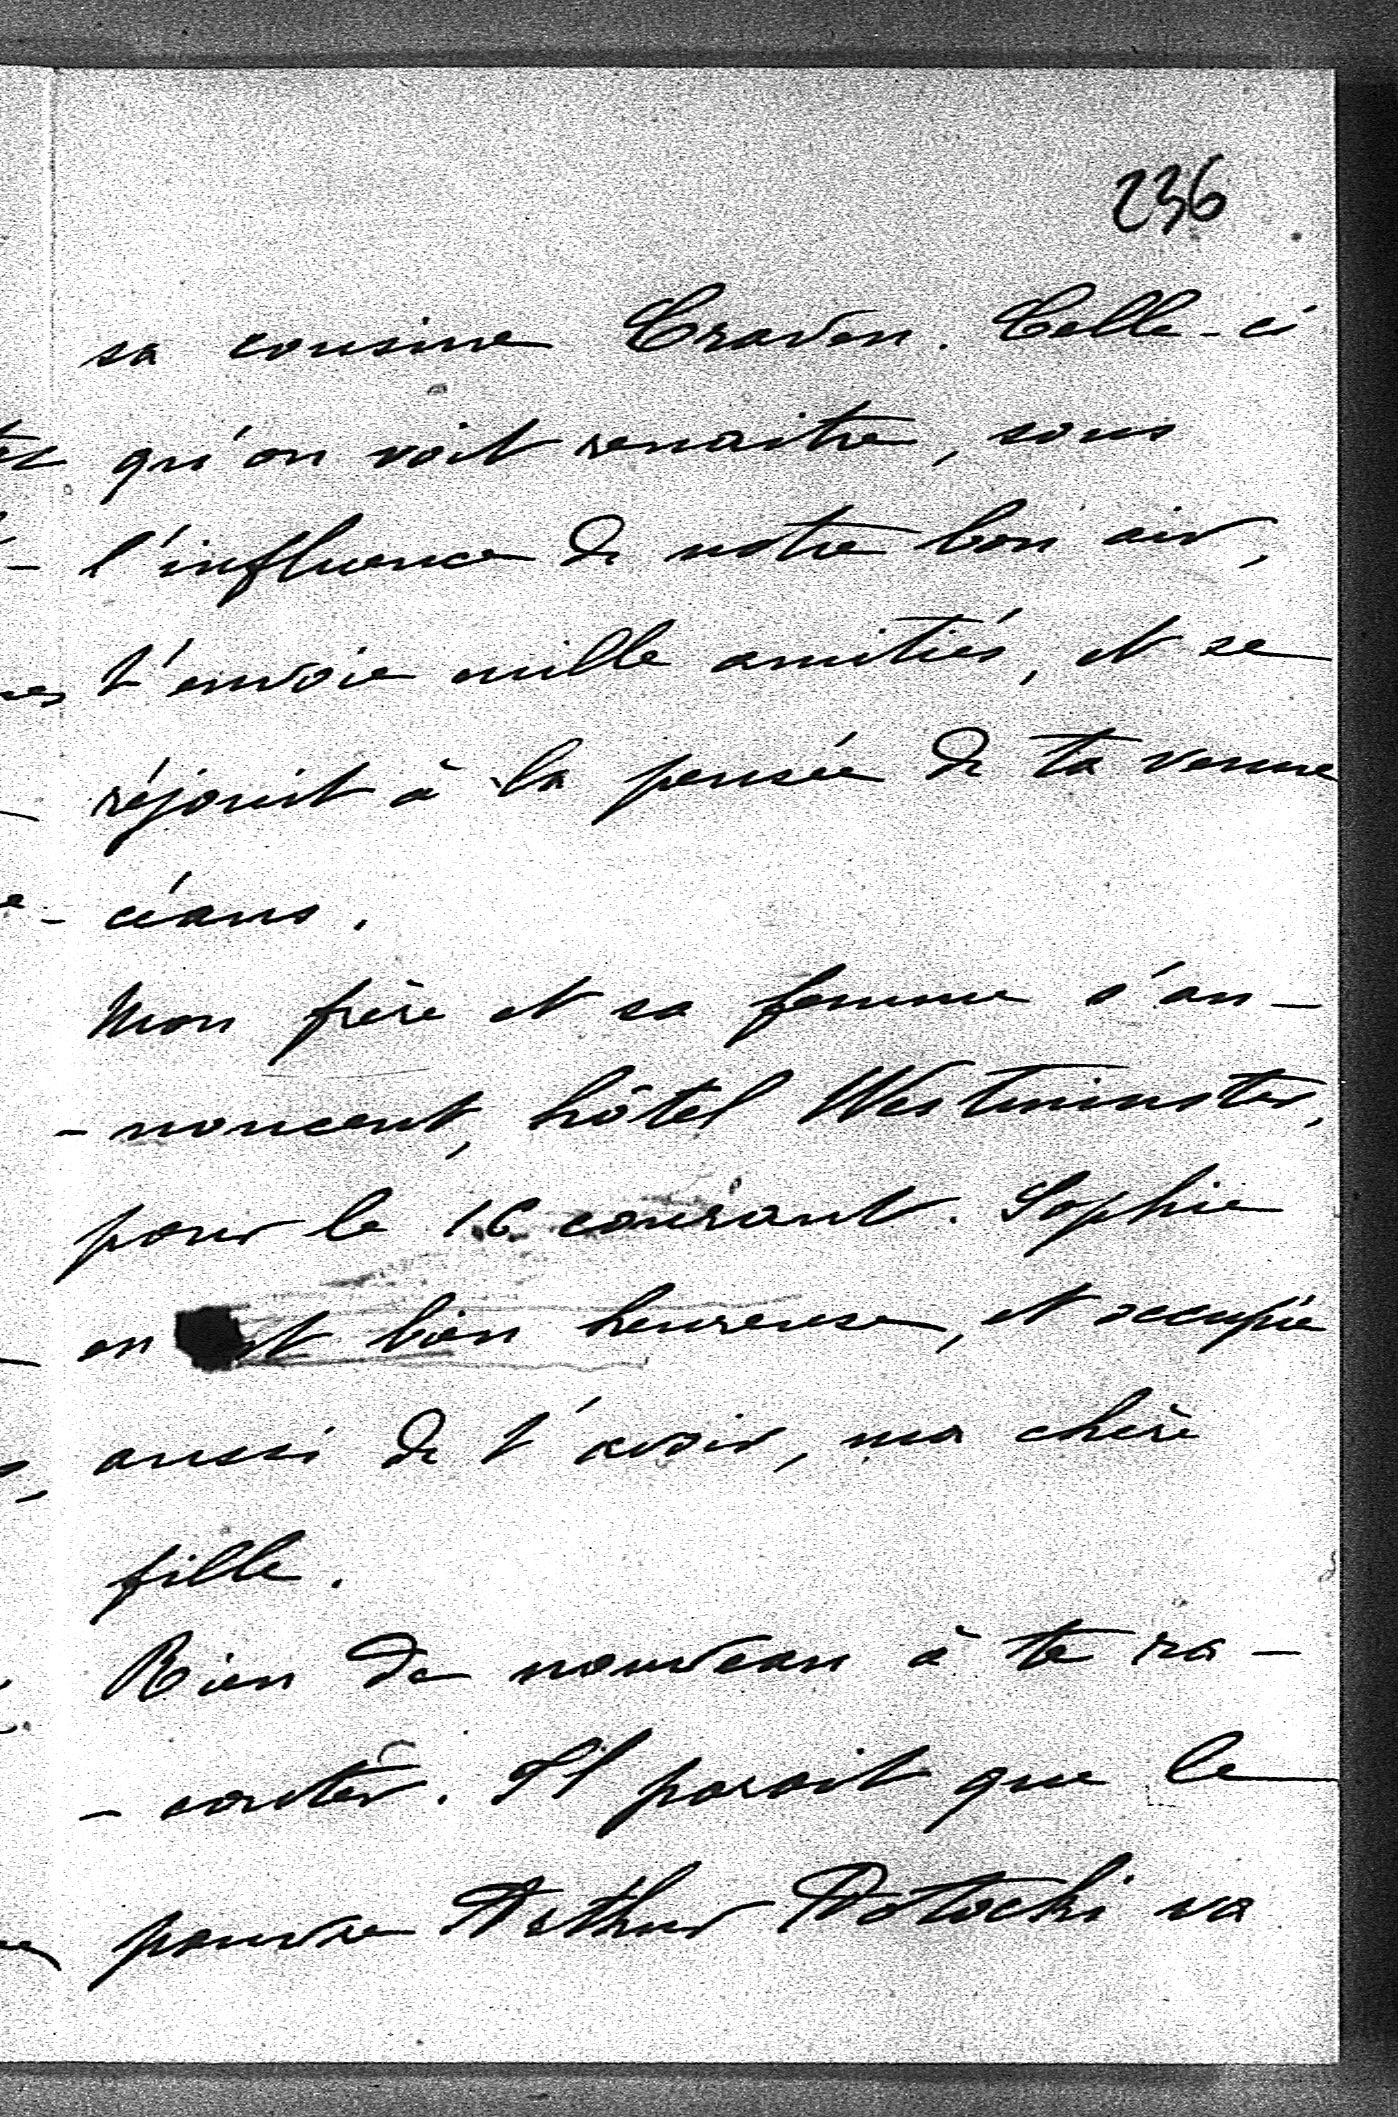 236
sa cousine Craven. Celle-ci
qu'on voit renaitre, sous
l'influence de notre bon air,
t'envoie mille amitiés, et se
réjouit à la pensée de ta venue
céans.
Mon frère et sa femme s'an-
-noncent, hôtel Westminster,
pour le 16 courant. Sophie
en est bien heureuse, et occupée
aussi de t'avoir, ma chère
fille.
Rien de nouveau à te ra-
-conter. Il parait que le
pauvre Arthur Potocki va